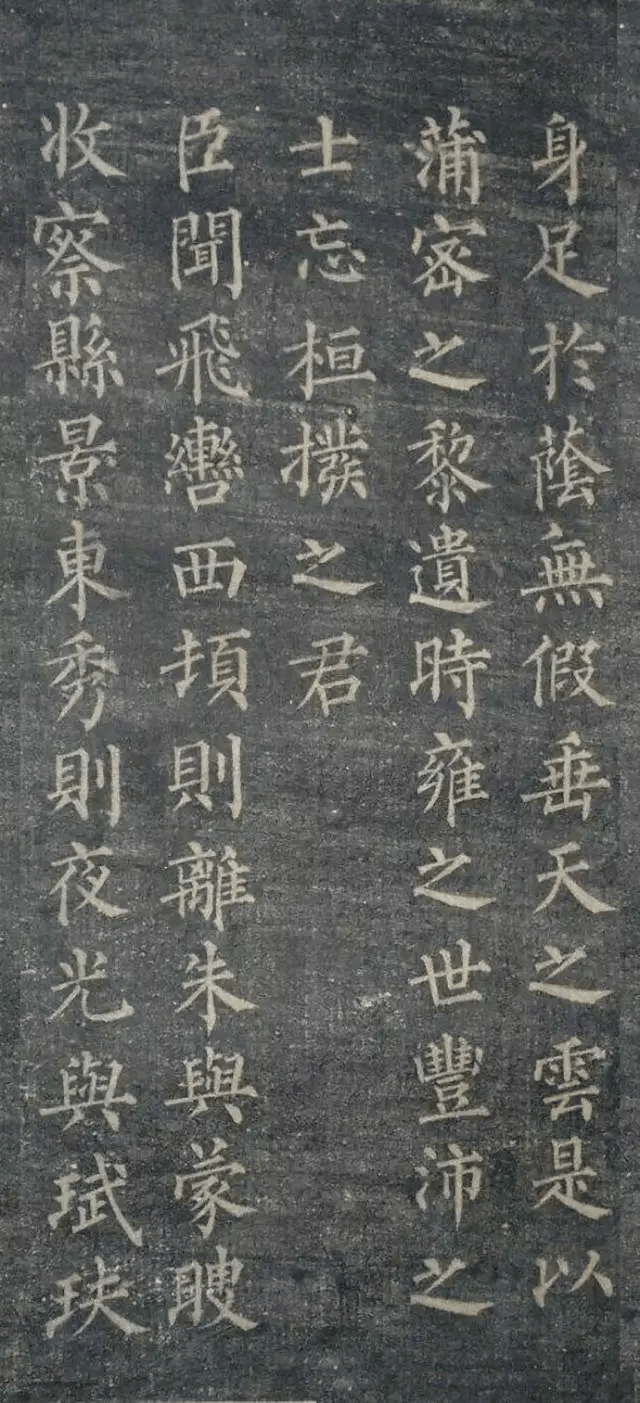 身足於蔭無假垂天之雲是以
蒲宻之黎遺時雍之世豐沛之
士忘桓撥之君
臣聞飛轡西頓則離朱與蒙瞍
收察縣景東秀則夜光與珷玞